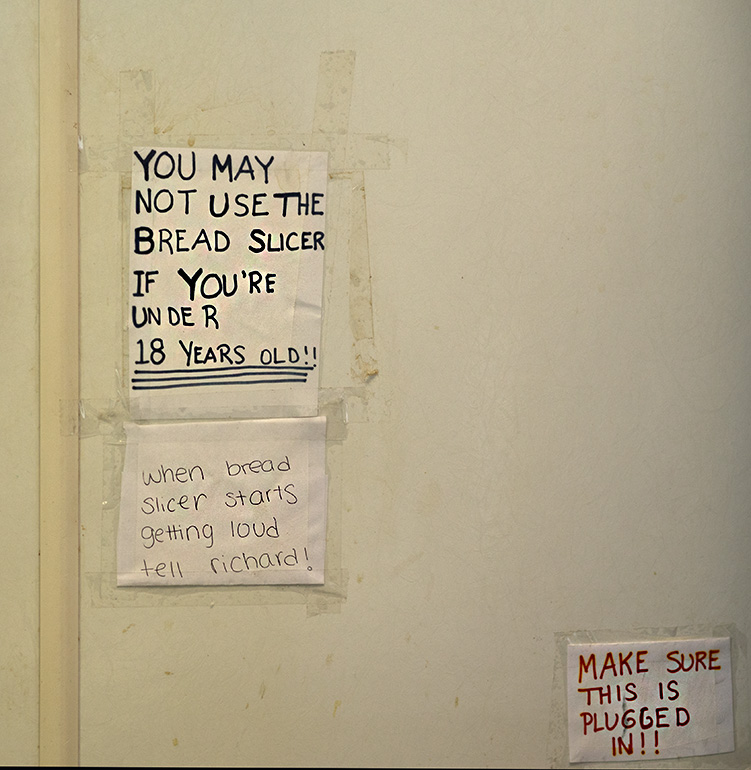 YOU MAY
NOT USE THE
BREAD SLICER
IF YOU'RE
UNDER
18 YEARS OLD!!
when bread
slicer starts
getting loud
tell richard!
MAKE SURE
THIS IS
PLUGGED
IN!!